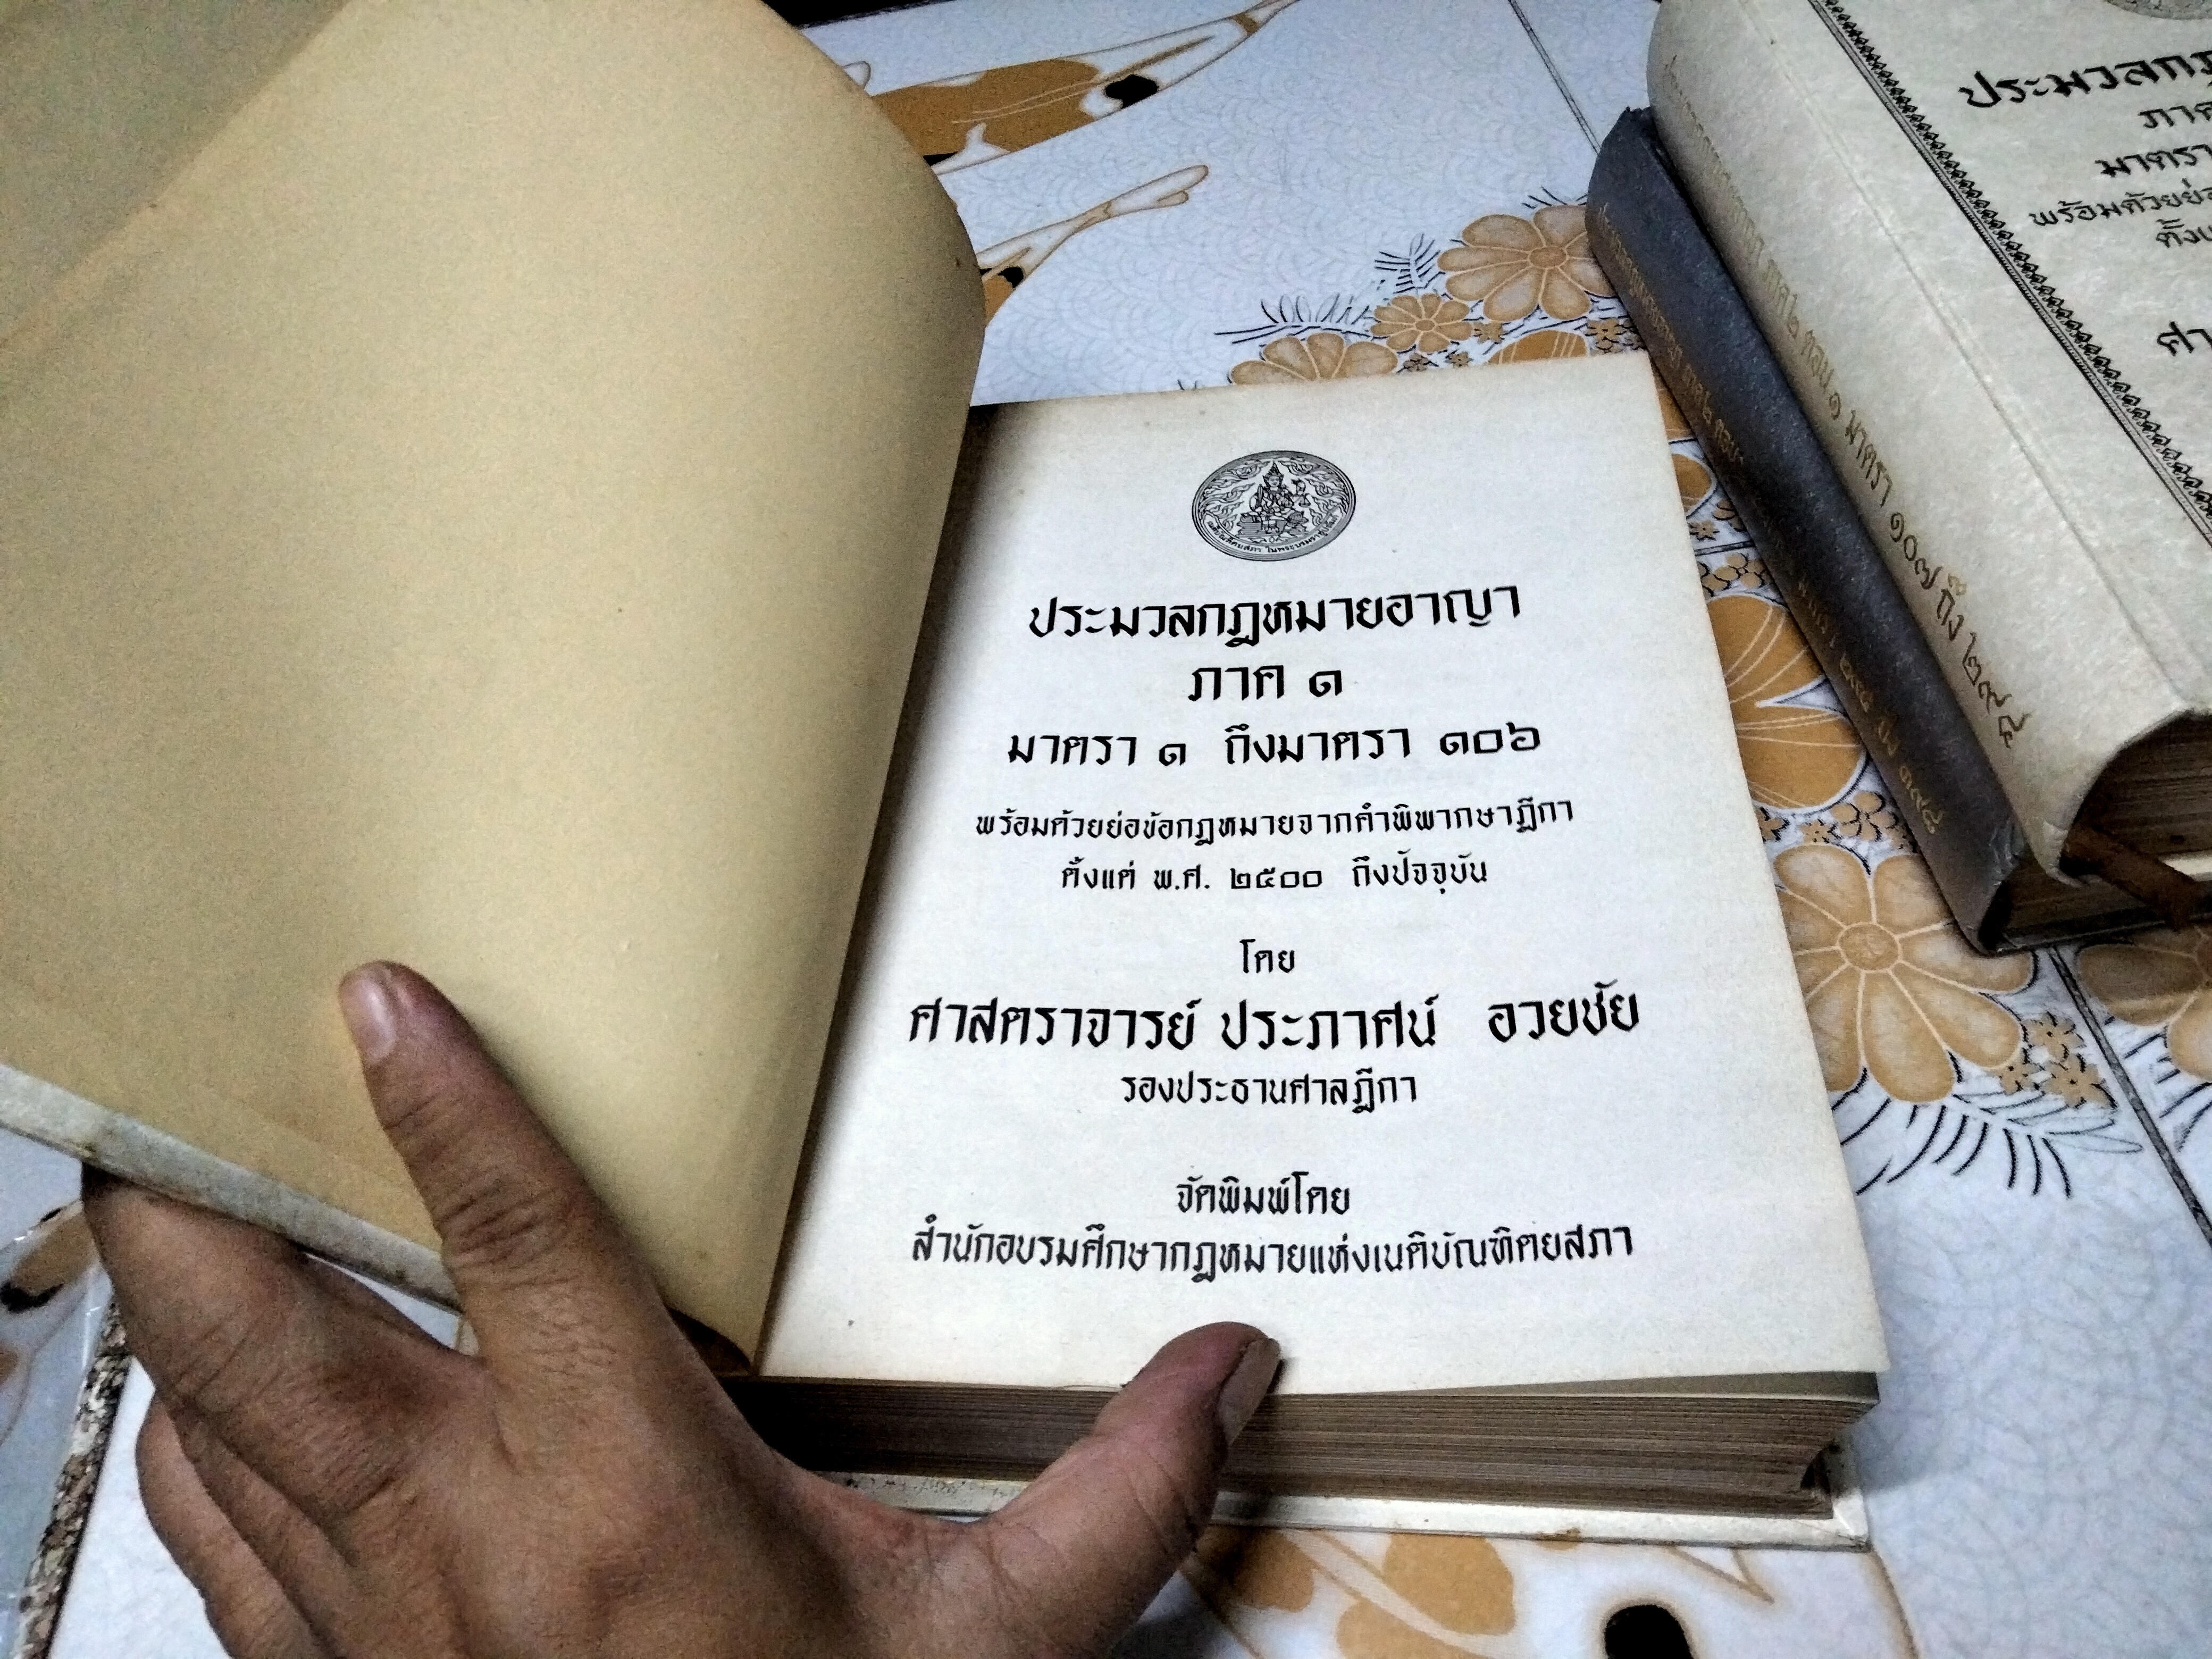 เนติบัณฑิตยสภา ในพระบรมราชูปถัมภ์
ประมวลกฎหมายอาญา
ภาค ๑
มาตรา ๑ ถึงมาตรา ๑๐๖
พร้อมด้วยย่อข้อกฎหมายจากคำพิพากษาฎีกา
ตั้งแต่ พ.ศ. ๒๕๐๐ ถึงปัจจุบัน
โดย
ศาสตราจารย์ ประภาศน์ อวยชัย
รองประธานศาลฎีกา
จัดพิมพ์โดย
สำนักอบรมศึกษากฎหมายแห่งเนติบัณฑิตยสภา
ประมวลกฎ
ภาค
มาตรา
พร้อมด้วยย่อ
ตั้งแ
ศา
ภาค ๒ ตอน ๑ มาตรา ๑๐๗ ถึง ๒๙๔
ภาค ๒ ตอน